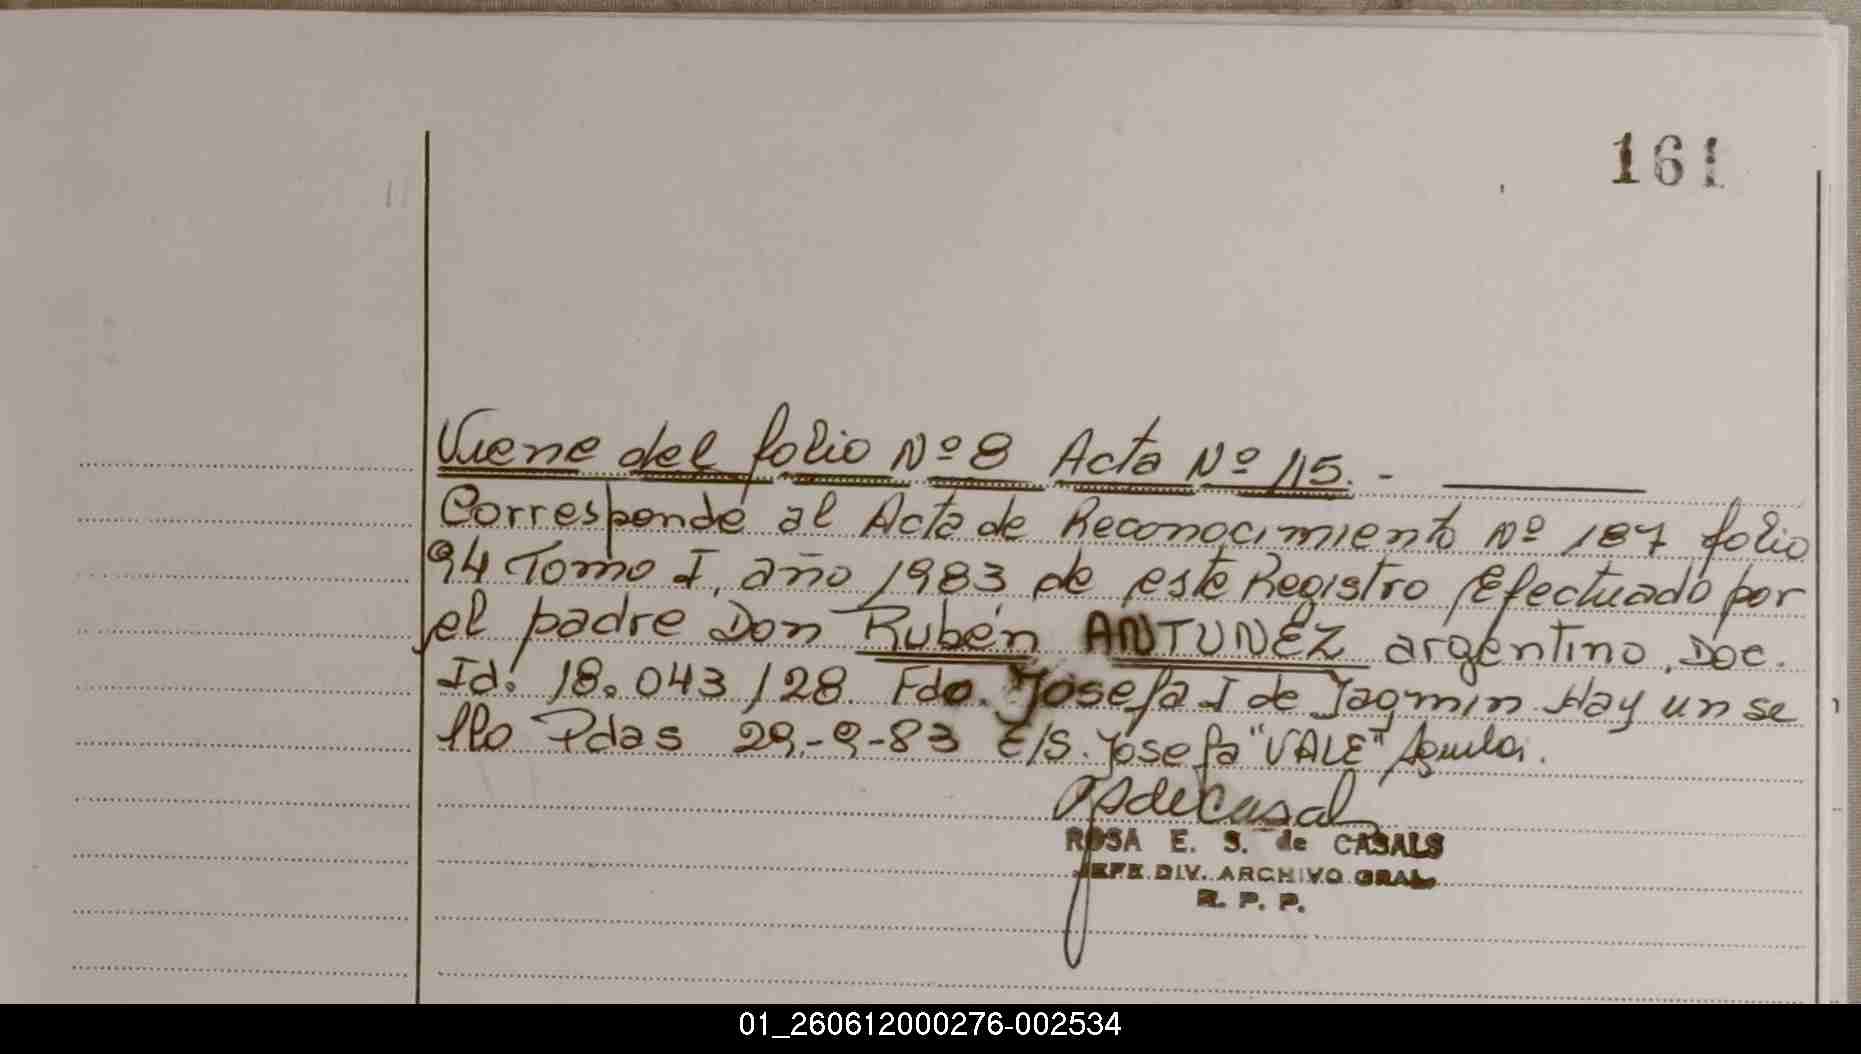 161
Viene del folio Nº 8 Acta Nº 115.-
Corresponde al Acta de Reconocimiento Nº 187 folio
94 Tomo I, año 1983 de este Registro Efectuado por
el padre Don Rubén ANTUNEZ argentino. Doc.
Id. 18.043/28. Fdo. Josefa I de Jagmin Hay un se
llo Pdas 29-9-83 E/S. Josefa "VALE"
ROSA E. S. de CASALS
JEFE DIV. ARCHIVO GRAL
R. P. P.
01_260612000276-002534